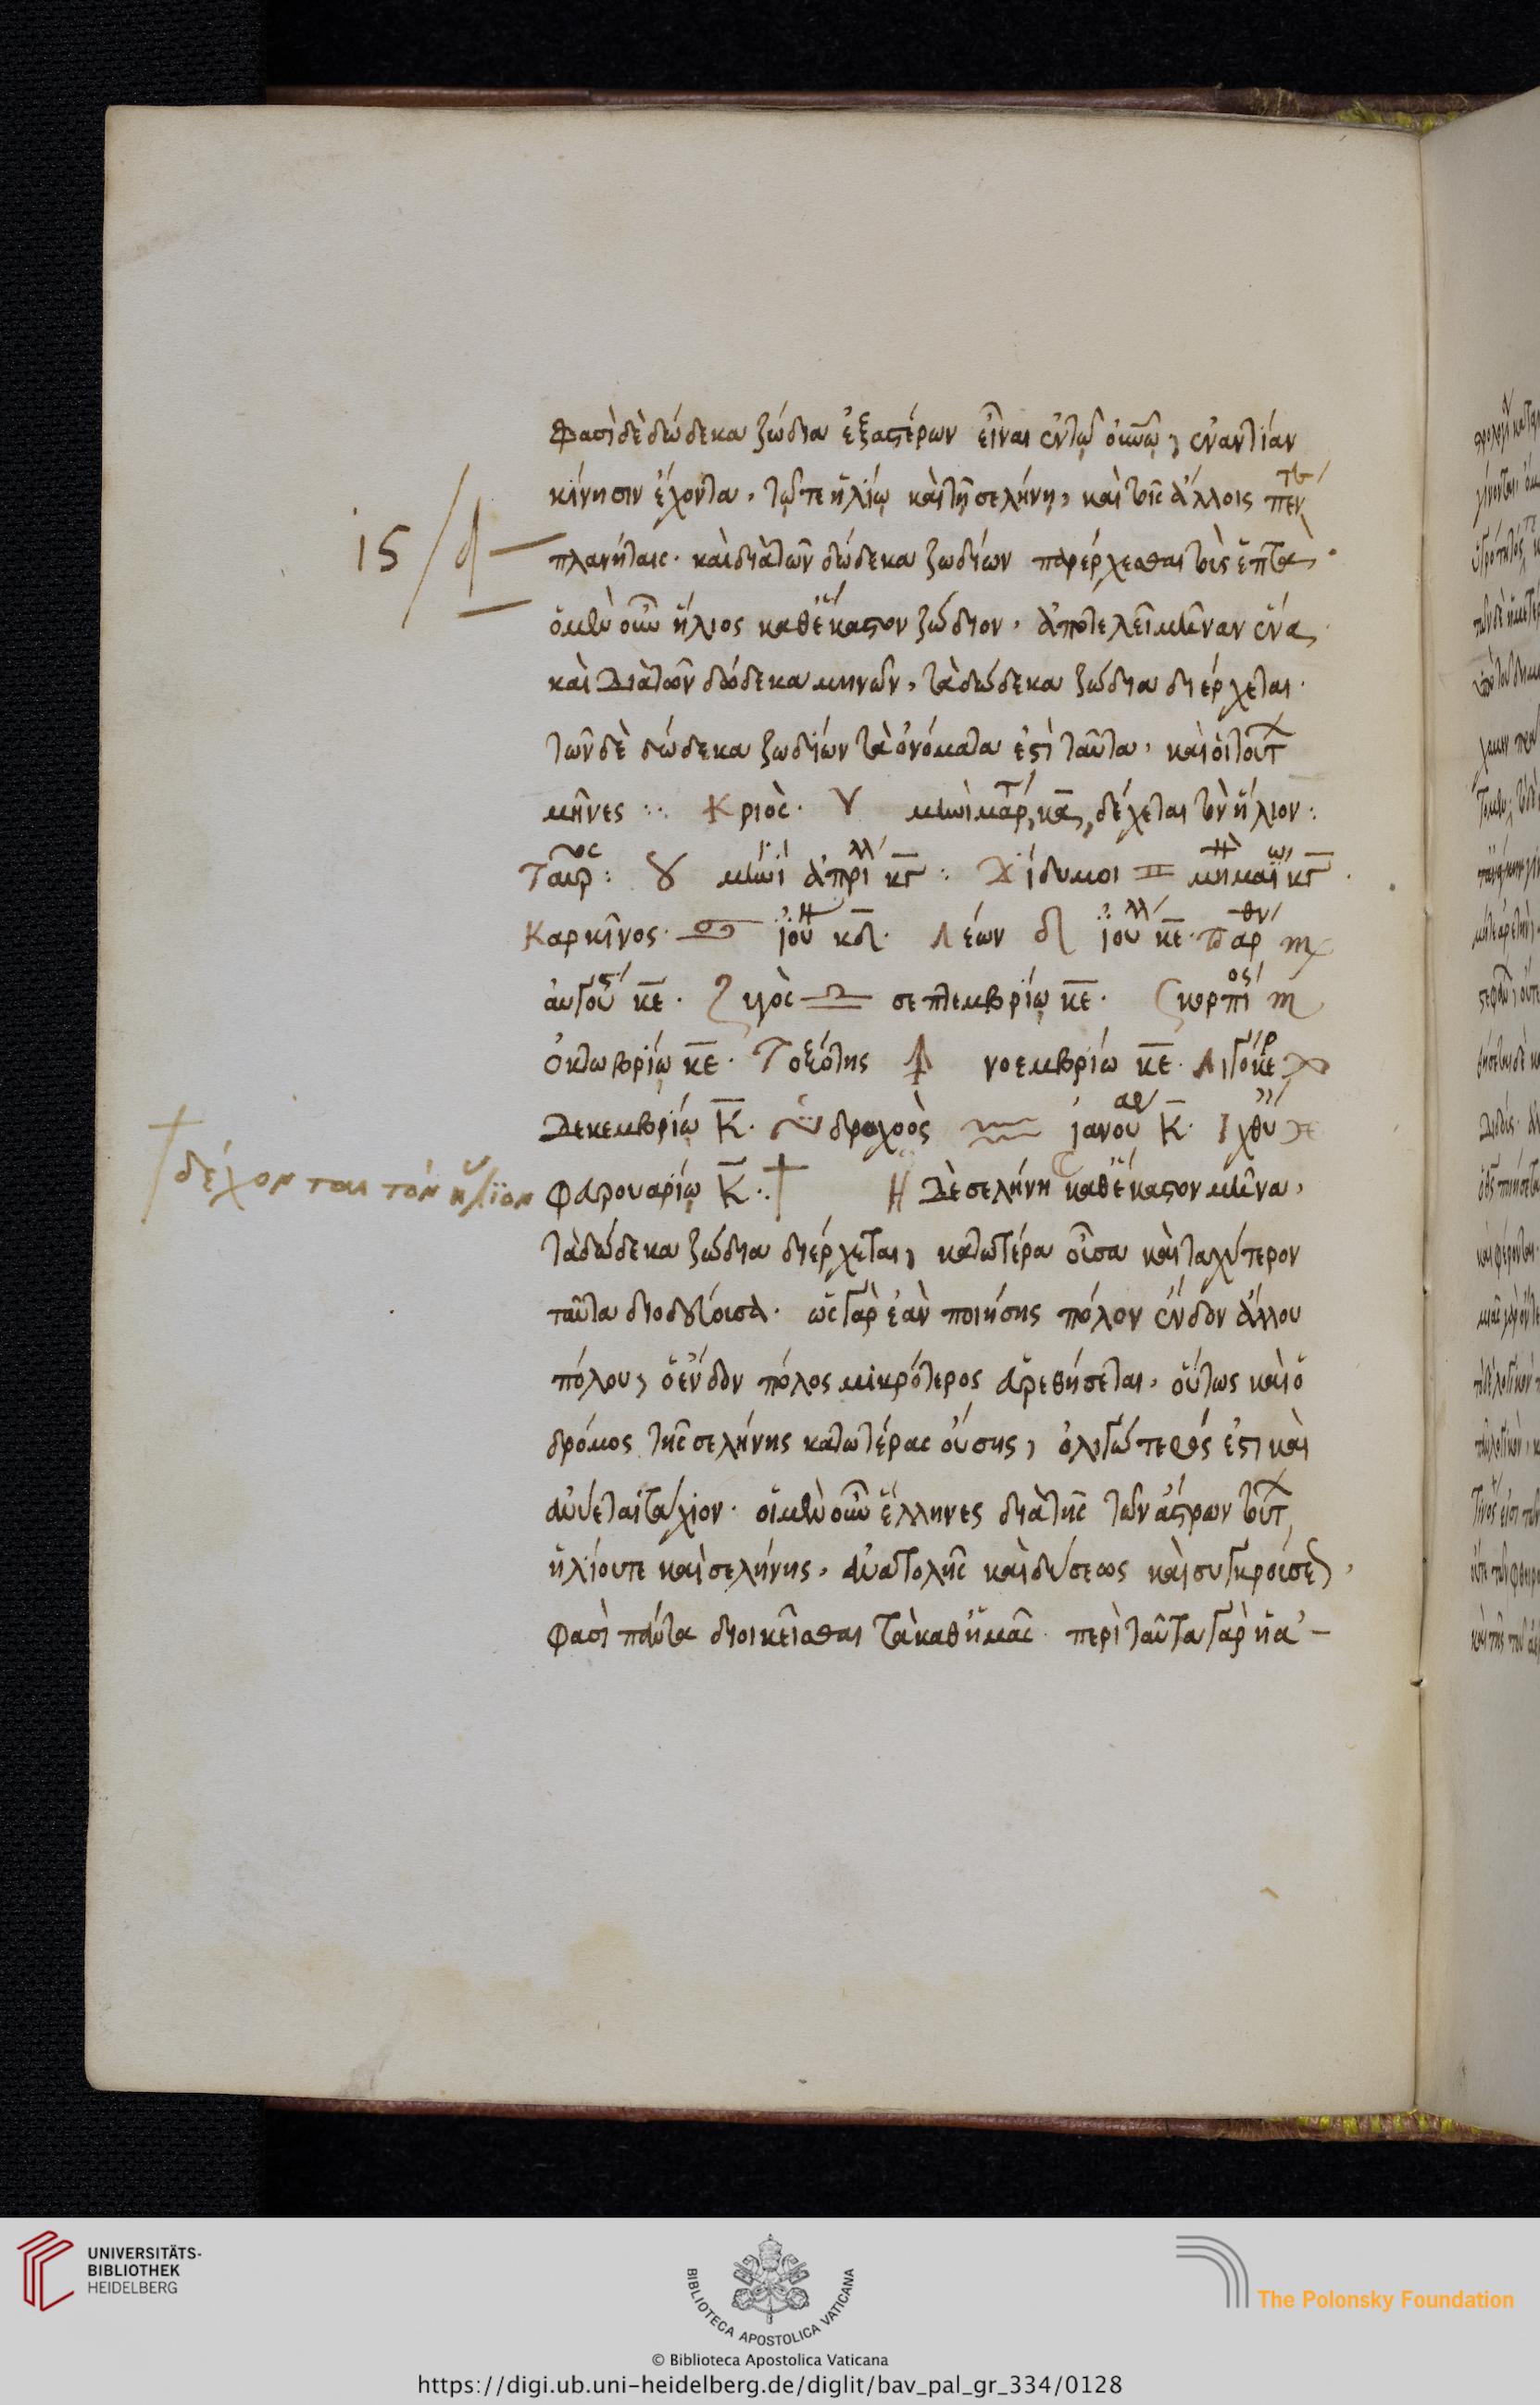 φασὶ δὲ δώδεκα ζώδια ἐξ ἀστέρων εἶναι ἐν τῷ οὐνῷ, ἐναντίαν
κίνησιν ἔχοντα, τῷ τε ἡλίῳ καὶ τῇ σελήνῃ, καὶ τοῖς ἄλλοις πεν
πλανήταις. καὶ διὰ τῶν δώδεκα ζωδίων παρέρχεσθαι τοὺς ἑπτά.
ὁ μὲν οὖν ἥλιος καθ' ἕκαστον ζώδιον, ἀποτελεῖ μῆναν ἕνα,
καὶ διὰ τῶν δώδεκα μηνῶν, τὰ δώδεκα ζώδια διέρχεται.
τῶν δὲ δώδεκα ζωδίων τὰ ὀνόματα ἐστὶ ταῦτα, καὶ οἱ τούτ
μῆνες : Κριὸς. ♈ μηνὶ μαρτ κα, δέχεται τὸν ἥλιον :
Ταῦρος : ♉ μηνὶ ἀπριλλ κγ : Δίδυμοι ♊ μηνὶ μαΐω κγ.
Καρκῖνος. ♋ ἰουν κδ. Λέων ♌ ἰουλλ κε. παρθν ♍
αὐγούστ κε. Ζυγὸς ♎ σεπτεμβρίῳ κε. Σκορπίος ♏
ὀκτωβρίῳ κε. Τοξότης ♐ νοεμβρίῳ κε. Αἰγόκερ ♑
Δεκεμβρίῳ κ. Ὑδροχοὸς ♒ ἰανουαρ κ. Ἰχθύ ♓
φαρουαρίῳ κ. † Ἡ δὲ σελήνη καθ' ἕκαστον μῆνα,
† δέχονται τὸν ἥλϊον
τὰ δώδεκα ζώδια διέρχεται, κατωτέρα οὖσα καὶ ταχύτερον
ταῦτα διοδεύουσα. ὡς γὰρ ἐὰν ποιήσῃς πόλον ἔνδον ἄλλου
πόλου, ὁ ἔνδον πόλος μικρότερος εὑρεθήσεται, οὕτως καὶ ὁ
δρόμος τῆς σελήνης κατωτέρας οὔσης, ὀλιγώτερός ἐστι καὶ
ἀνύεται τάχιον. οἱ μὲν οὖν ἕλληνες διὰ τῆς τῶν ἄστρων τούτ,
ἡλίου τε καὶ σελήνης, ἀνατολῆς καὶ δύσεως καὶ συγκρούσε,
φασὶ πάντα διοικεῖσθαι τὰ καθ' ἡμᾶς. περὶ ταῦτα γὰρ ἡ ἀ-
UNIVERSITÄTS-
BIBLIOTHEK
HEIDELBERG
BIBLIOTECA APOSTOLICA VATICANA
The Polonsky Foundation
© Biblioteca Apostolica Vaticana
https://digi.ub.uni-heidelberg.de/diglit/bav_pal_gr_334/0128